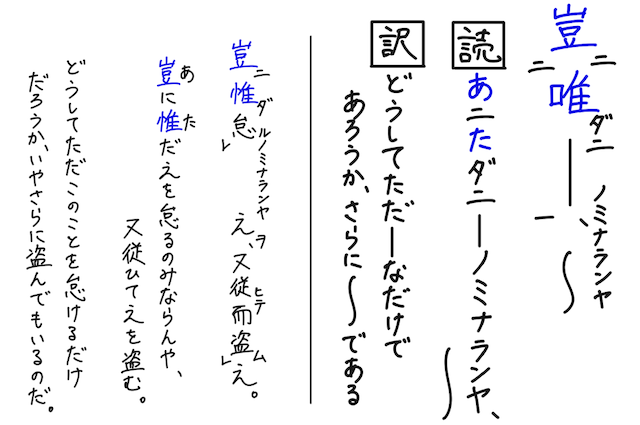 豈ニ唯ダニ―ノミナランヤ、〜
読 あニただニ―ノミナランヤ、〜
訳 どうしてただ―なだけで
あろうか、さらに〜である
豈ニ惟ダ怠ルノミナランヤヲレえ、又従ヒテ而盗ムレえ。
豈あに惟ただえを怠るのみならんや、
又従ひてえを盗む。
どうしてただこのことを怠けるだけ
だろうか、いやさらに盗んでもいるのだ。